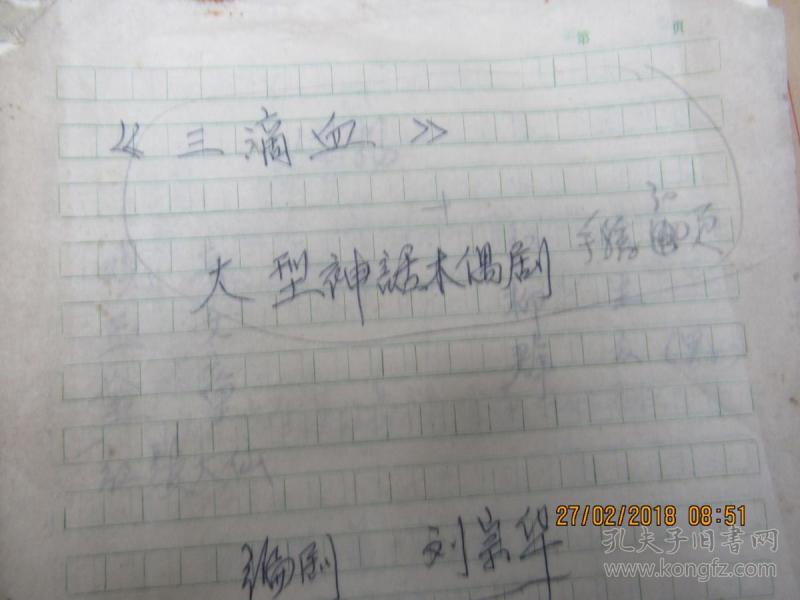 第 页
《三滴血》
大型神話木偶剧
页
编剧 刘宗华
27/02/2018 08:51
孔夫子旧书网
www.kongfz.com